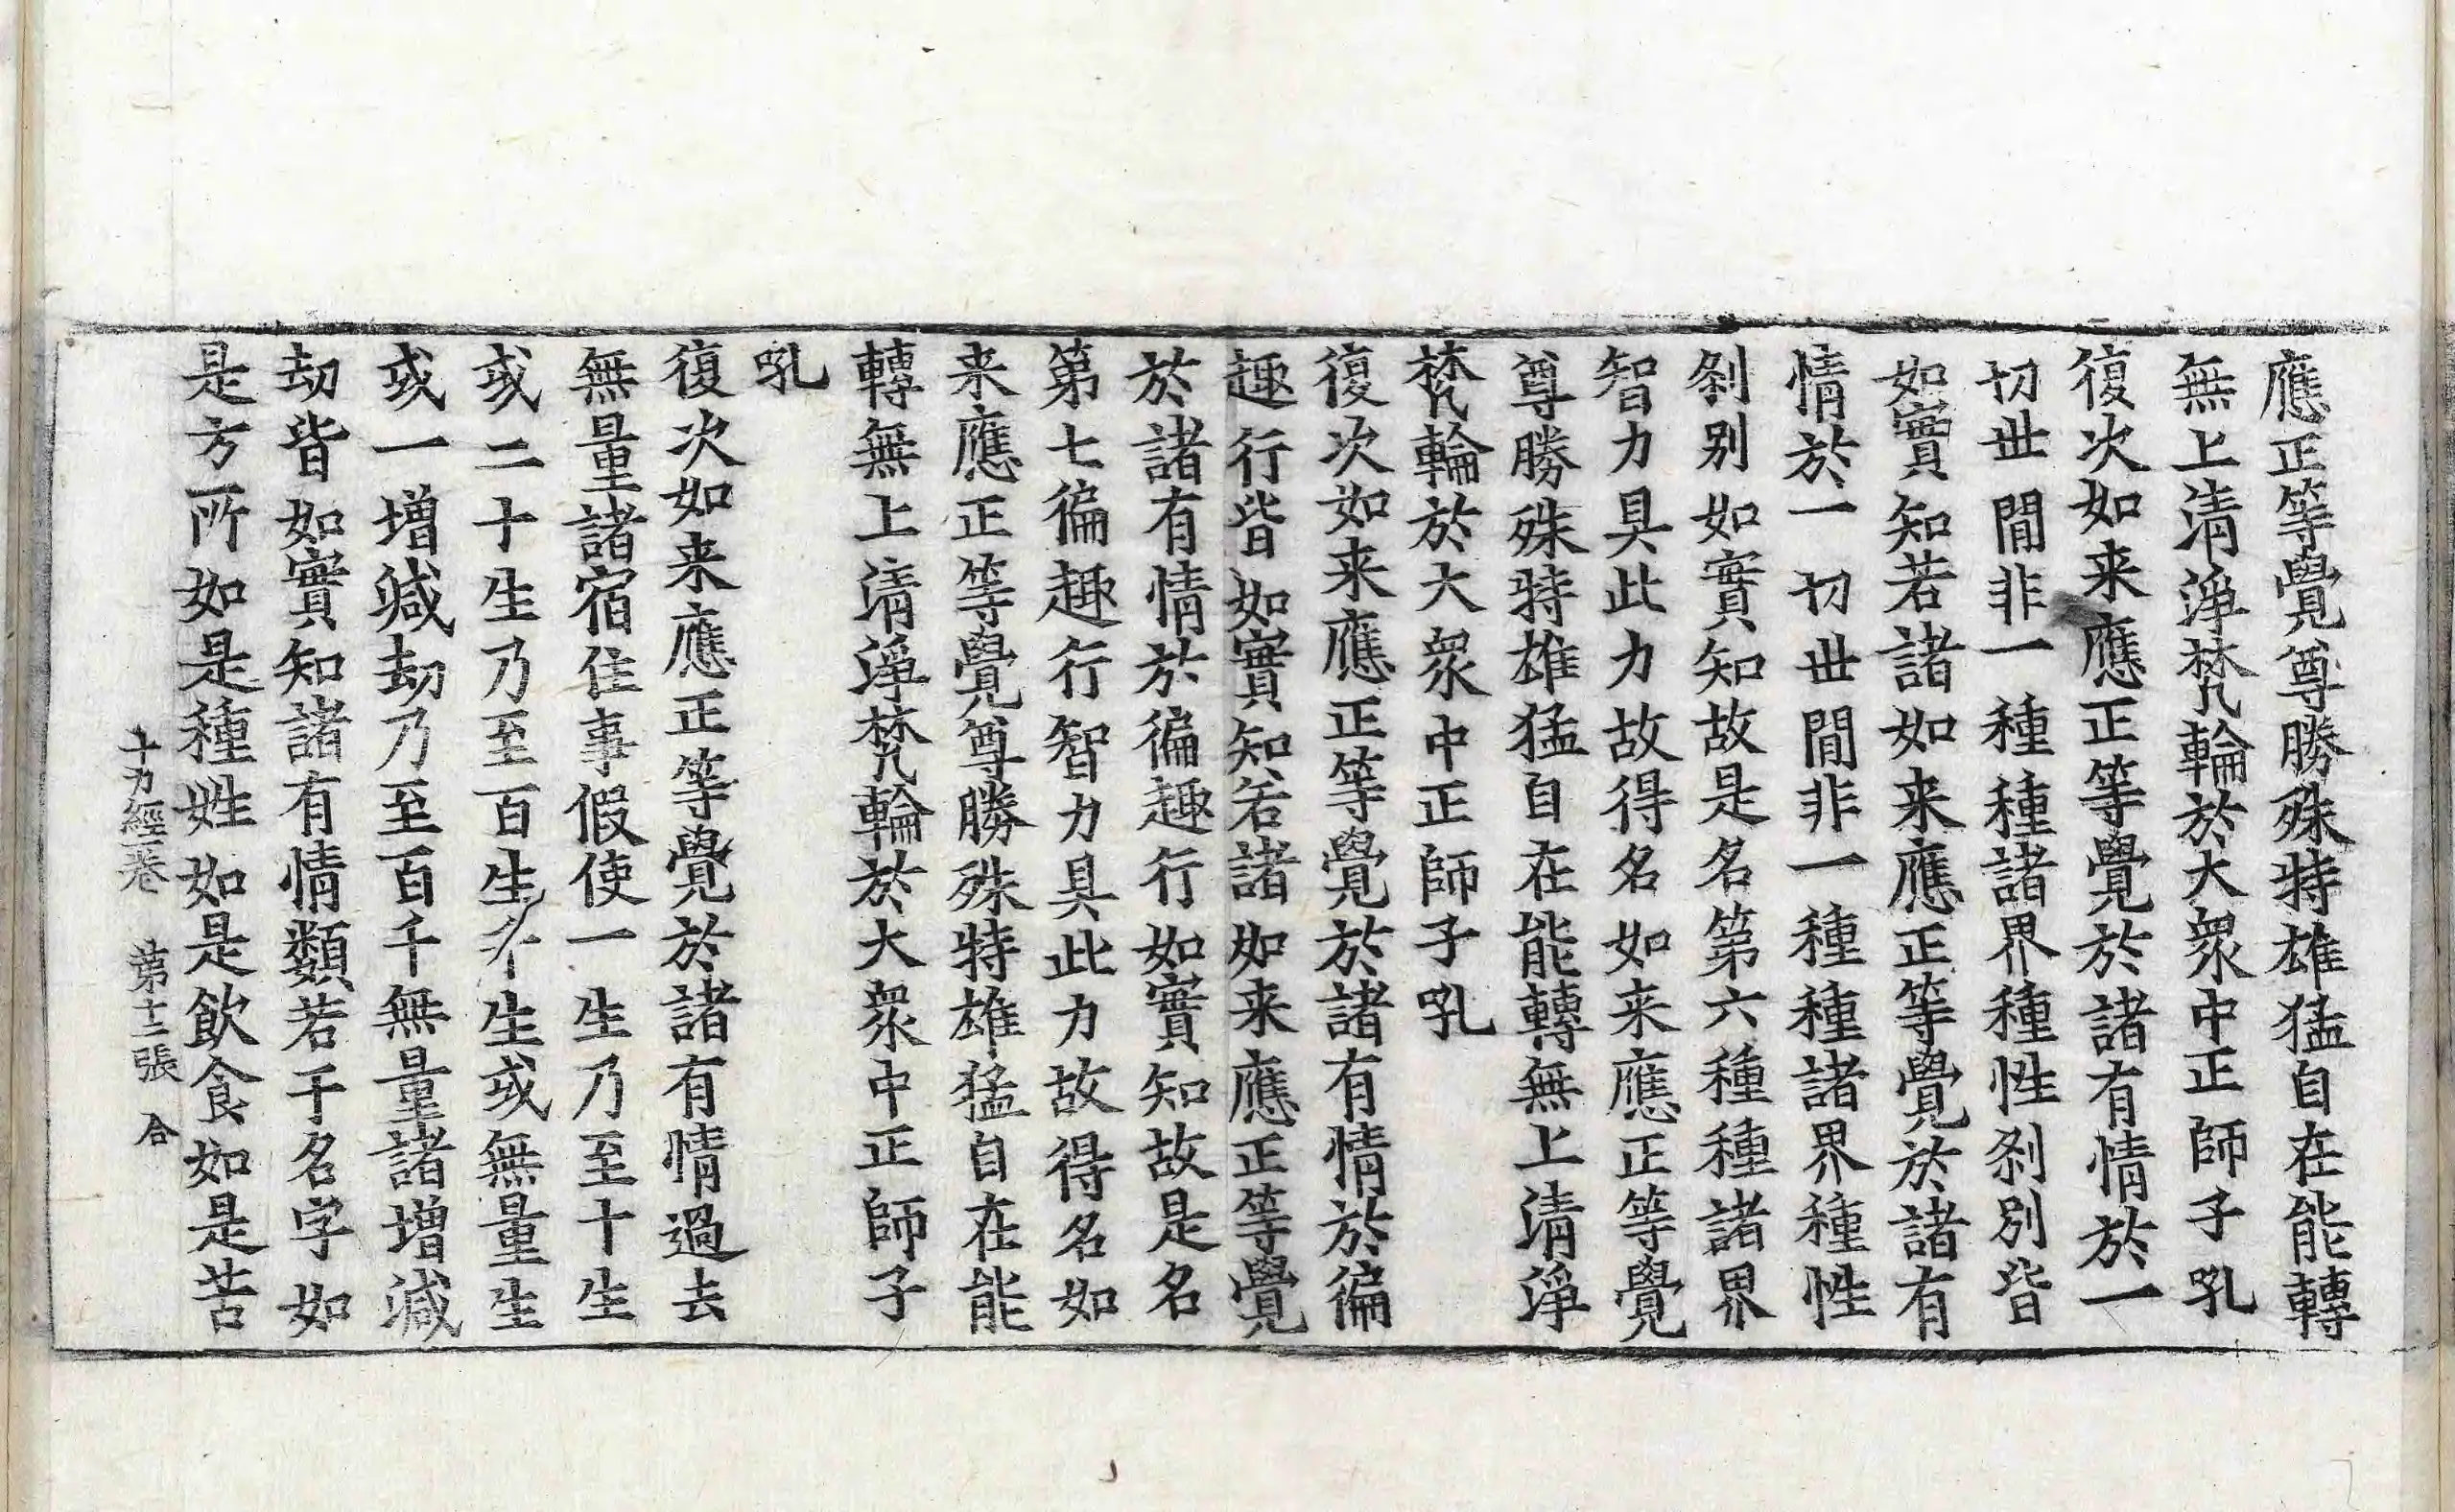 應正等覺尊勝殊特雄猛自在能轉
無上清淨梵輪於大衆中正師子吼
復次如来應正等覺於諸有情於一
切世間非一種種諸界種種性剎別皆
如實知若諸如来應正等覺於諸有
情於一切世間非一種種諸界種種性
剎別如實知故是名第六種種諸界
智力具此力故得名如来應正等覺
尊勝殊特雄猛自在能轉無上清淨
梵輪於大衆中正師子吼
復次如来應正等覺於諸有情於徧
趣行皆如實知若諸如来應正等覺
於諸有情於徧趣行如實知故是名
第七徧趣行智力具此力故得名如
来應正等覺尊勝殊特雄猛自在能
轉無上清淨梵輪於大衆中正師子
吼
復次如来應正等覺於諸有情過去
無量諸宿住事假使一生乃至十生
或二十生乃至百生千生或無量生
或一增減劫乃至百千無量諸增減
劫皆如實知諸有情類若干名字如
是方所如是種姓如是飲食如是苦
十力經一卷 第十二張 合